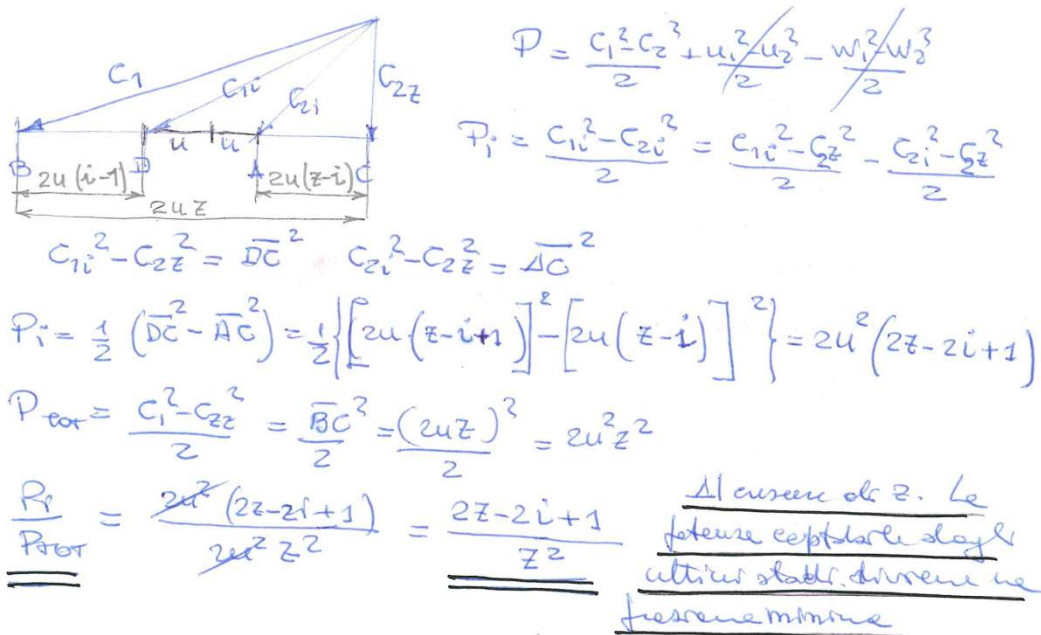 C₁ C₁ᵢ C₂ᵢ C₂z
u u
B D A C
2u(i-1) 2u(z-i)
2uz
P = (C₁²-C₂²)/2 + (u₁²-u₂²)/2 - (w₁²-w₂²)/2
Pᵢ = (C₁ᵢ²-C₂ᵢ²)/2 = (C₁ᵢ²-C₂z²)/2 - (C₂ᵢ²-C₂z²)/2
C₁ᵢ²-C₂z² = DC² C₂ᵢ²-C₂z² = AC²
Pᵢ = 1/2 (DC²-AC²) = 1/2 {[2u(z-i+1)]²-[2u(z-i)]²} = 2u²(2z-2i+1)
P tot = (C₁²-C₂z²)/2 = BC²/2 = (2uz)²/2 = 2u²z²
Pi/PTOT = 2u²(2z-2i+1)/2u²z² = (2z-2i+1)/z²
Al crescere di z. la
potenza dagli
ultimi stadi. diviene una
frazione minima